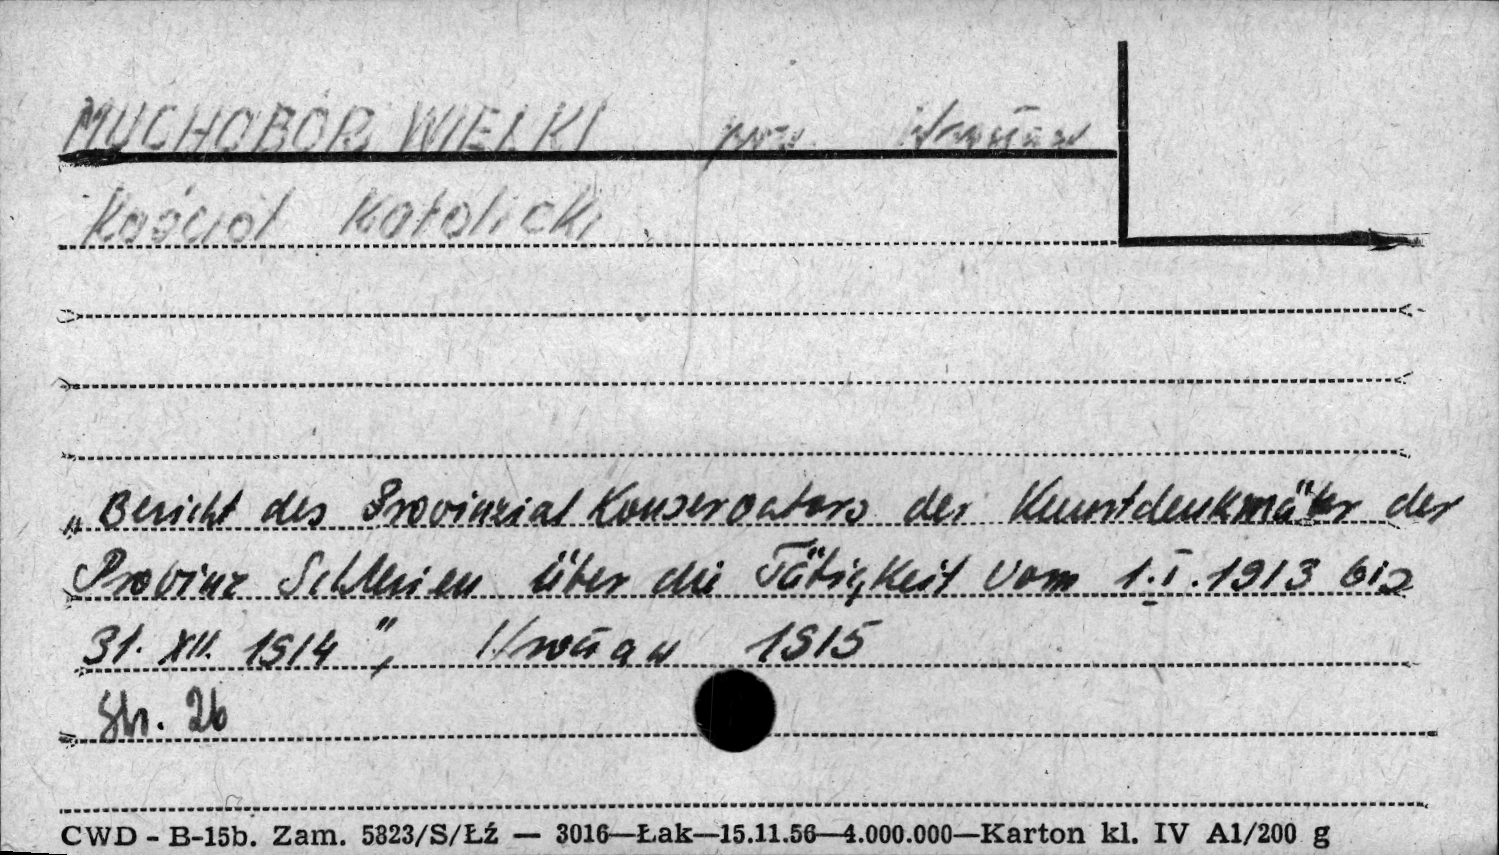 MUCHOBÓR WIELKI pow. Wrocław
Kościół Katolicki
„Bericht des Provinzial Konservators der Kunstdenkmäler der
Provinz Schlesien über die Tätigkeit vom 1.I.1913 bis
31. XII. 1914", Wrocław 1915
Str. 26
CWD - B-15b. Zam. 5823/S/Łź — 3016—Łak—15.11.56—4.000.000—Karton kl. IV A1/200 g